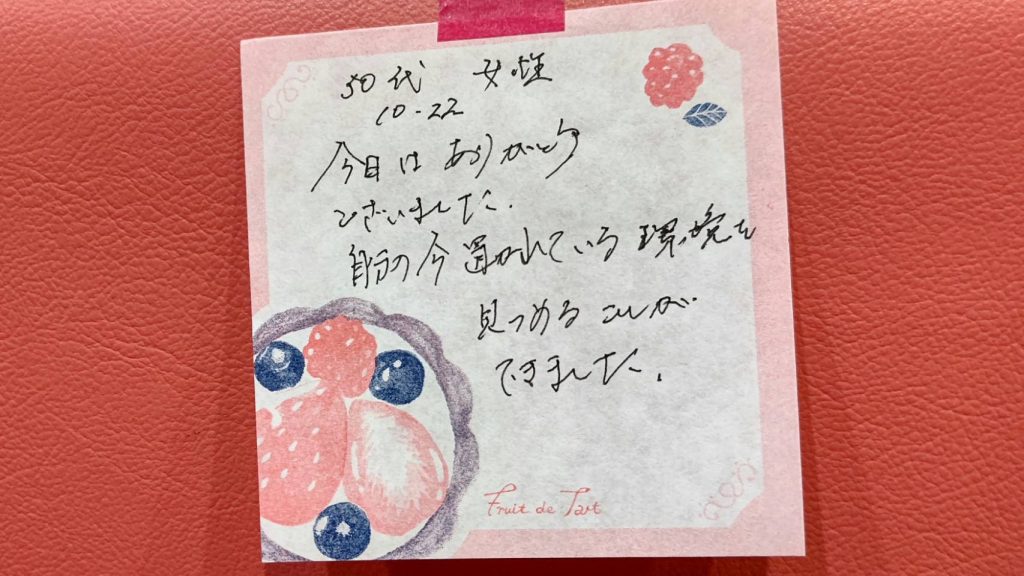 50代 女性
10-22
今日は ありがとう
ございました.
自分の今置かれている環境を
見つめることが
できました.
Fruit de Tart